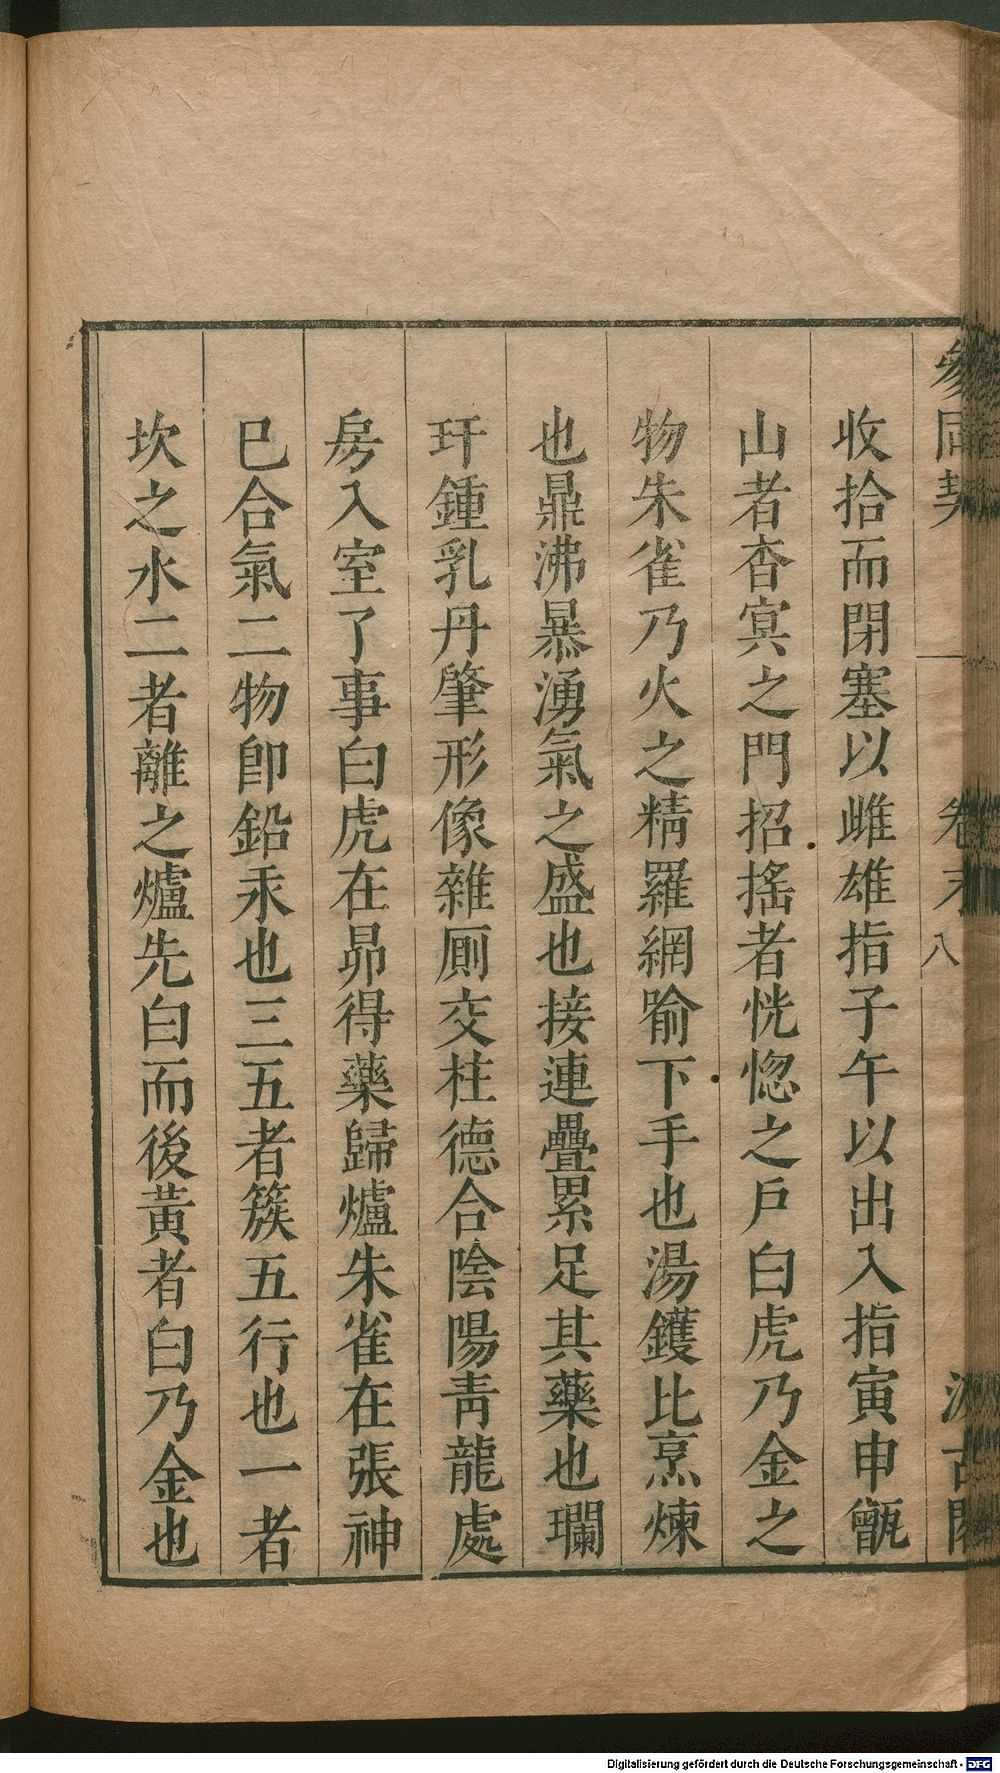 參同契 卷末 八 汲古閣
收拾而閉塞以雌雄指子午以出入指寅申甑
山者杳冥之門招搖者恍惚之戶白虎乃金之
物朱雀乃火之精羅網喻下手也湯鑊比烹煉
也鼎沸暴湧氣之盛也接連疊累足其藥也瓓
玕鍾乳丹肇形像雜廁交柱德合陰陽青龍處
房入室了事白虎在昴得藥歸爐朱雀在張神
巳合氣二物卽鉛汞也三五者簇五行也一者
坎之水二者離之爐先白而後黃者白乃金也
Digitalisierung gefördert durch die Deutsche Forschungsgemeinschaft - DFG